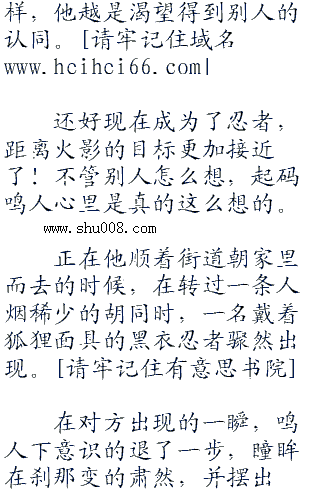 样，他越是渴望得到别人的
认同。[请牢记住域名
www.hcihci66.com|
还好现在成为了忍者，
距离火影的目标更加接近
了！不管别人怎么想，起码
鸣人心里是真的这么想的。
www.shu008.com
正在他顺着街道朝家里
而去的时候，在转过一条人
烟稀少的胡同时，一名戴着
狐狸面具的黑衣忍者骤然出
现。[请牢记住有意思书院]
在对方出现的一瞬，鸣
人下意识的退了一步，瞳眸
在刹那变的肃然，并摆出